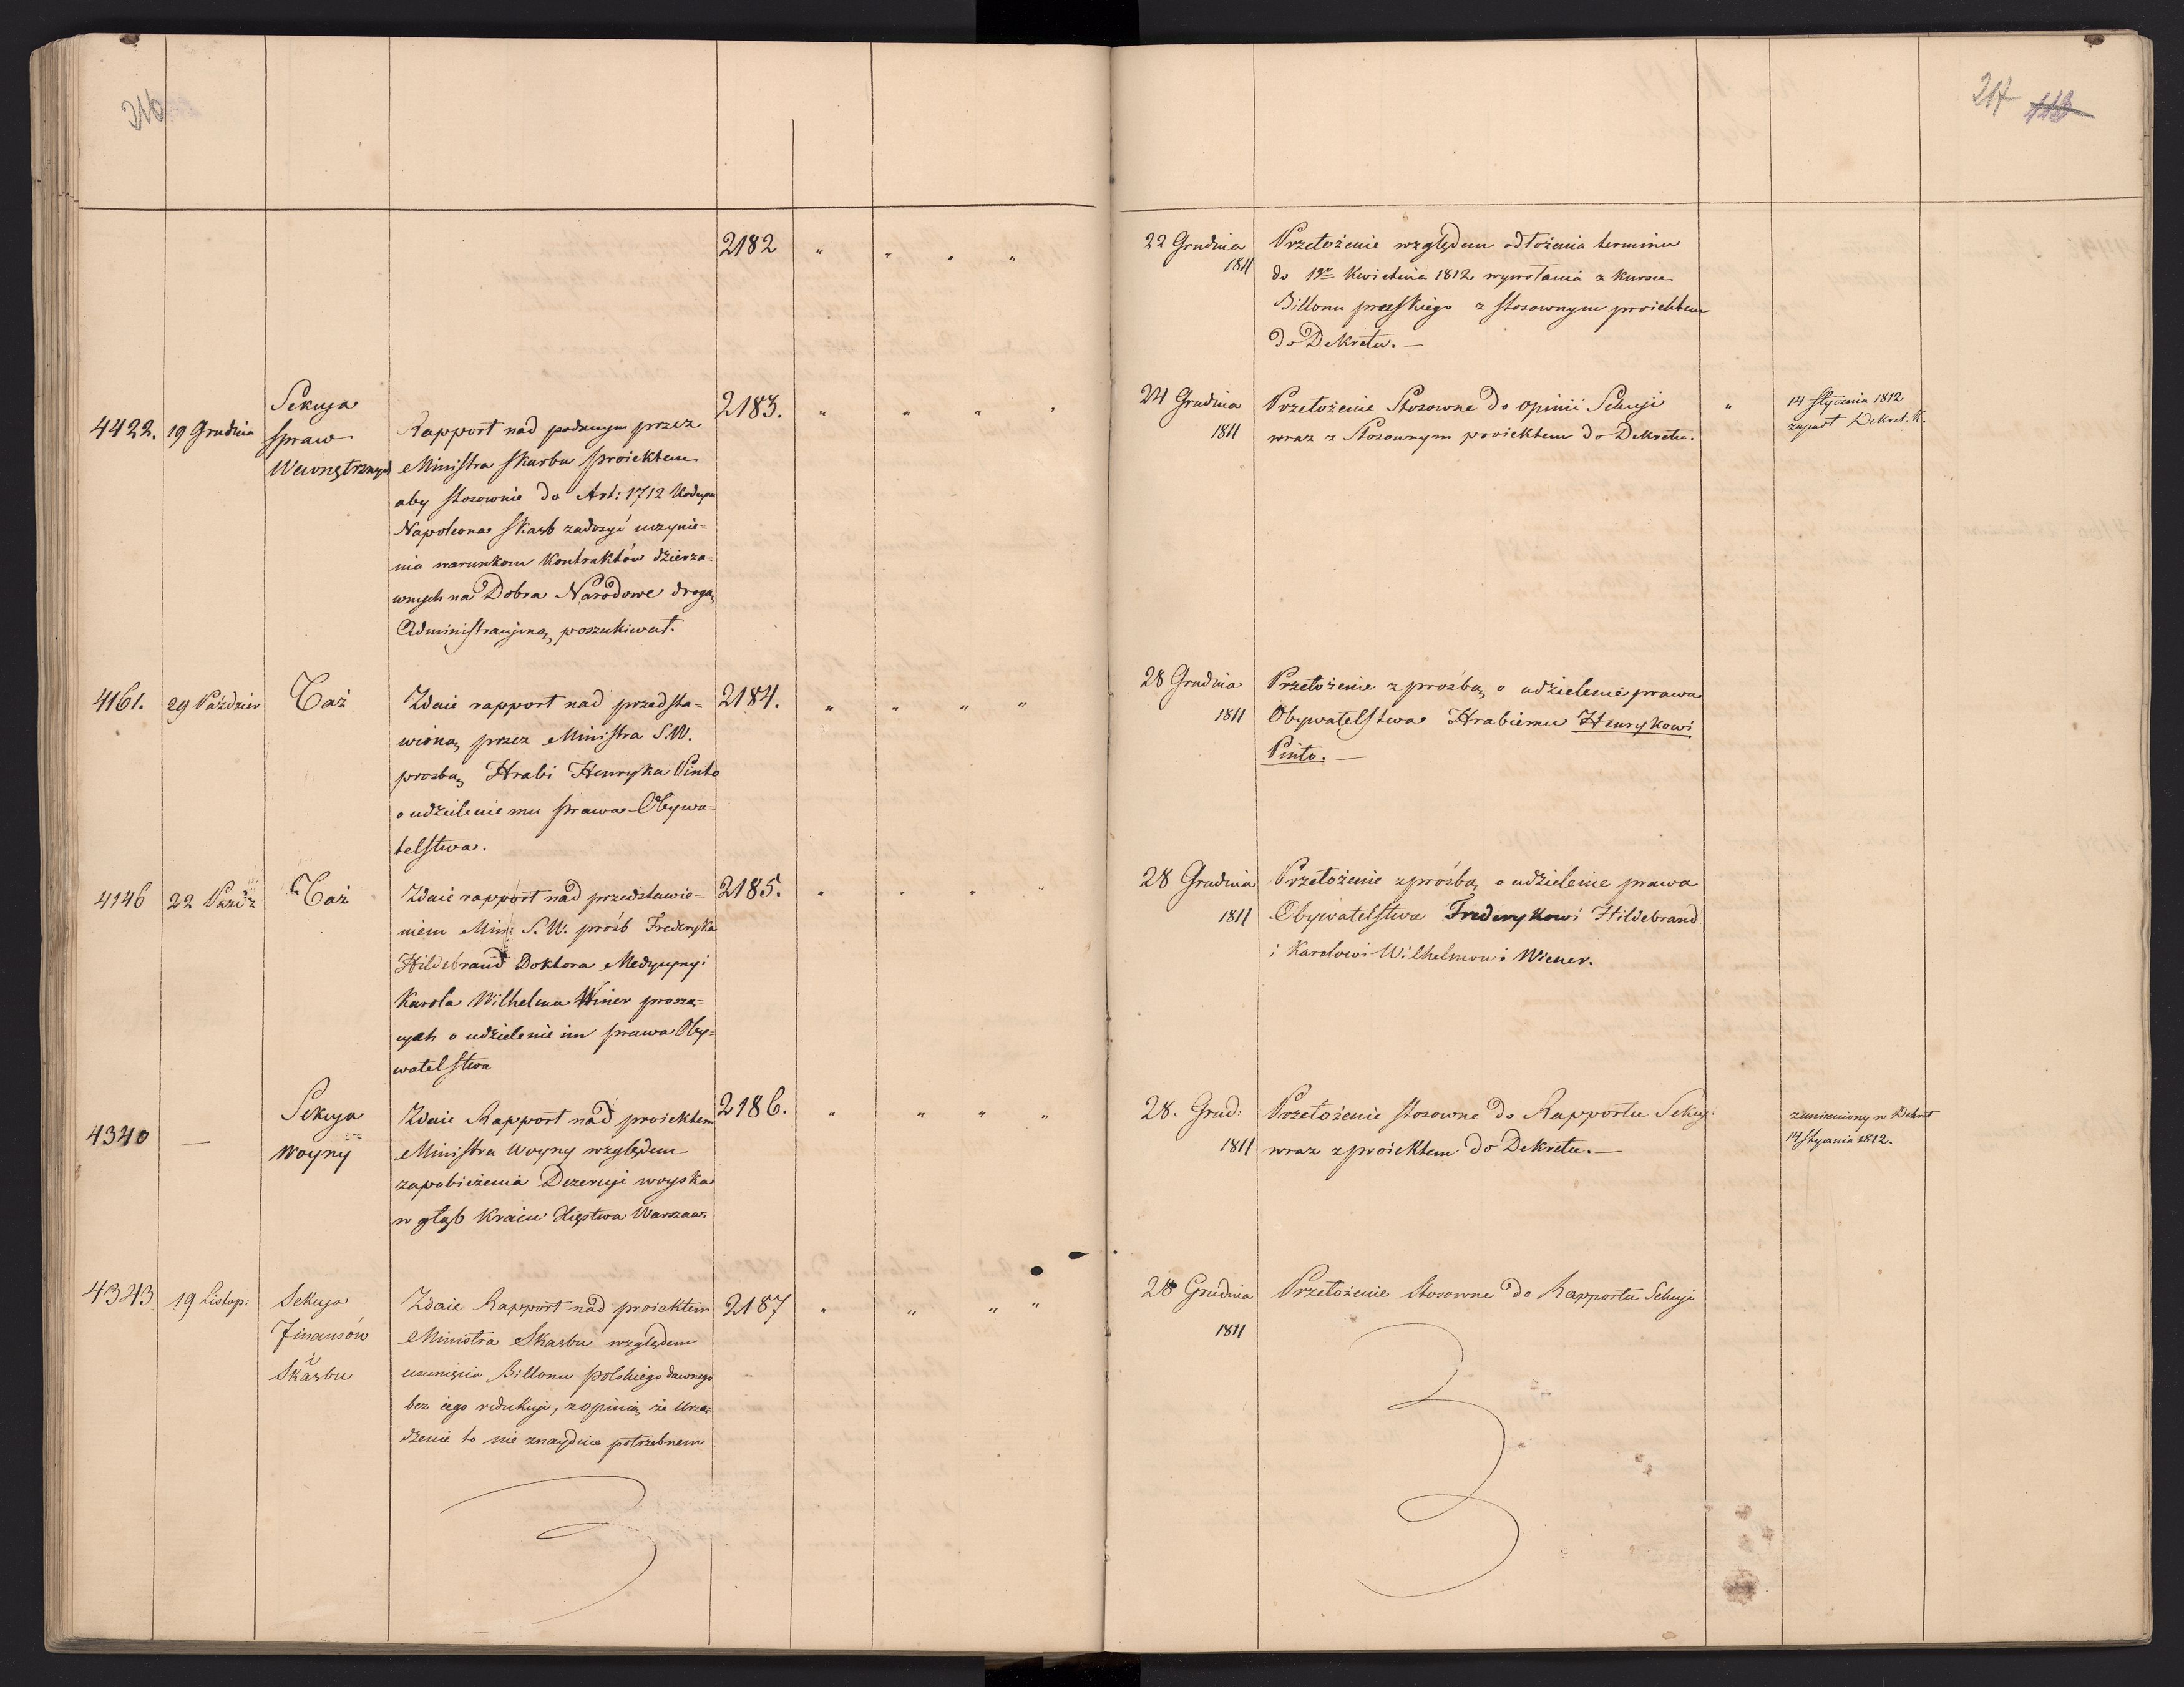 216
217 113
2182 " " " "
22 Grudnia
1811
Przełożenie względem odłożenia terminu
do 1go Kwietnia 1812 wywołania z kursu
Billonu pruskiego z stosownym proiektem
do Dekretu. —
4422. 19 Grudnia
Sekcya
spraw
Wewnętrznych
Rapport nad podanym przez
Ministra skarbu proiektem
aby stosownie do Art: 1712 Kodexu
Napoleona skarb zadosyć uczynie=
nia warunkom kontraktów dzierza=
wnych na Dobra Narodowe drogą
Administracyiną poszukiwał.
2183. " " " "
24 Grudnia
1811
Przełożenie Stosowne do opinii Sekcyi
wraz z Stosownym proiektem do Dekretu.
"
14 stycznia 1812
zapadł Dekret. K.
4161. 29 Paździer
Taż
Zdaie rapport nad przedsta=
wioną przez Ministra S.W.
prośbą Hrabi Henryka Pinto
o udzielenie mu prawa Obywa=
telstwa.
2184. " " " "
28 Grudnia
1811
Przełożenie z prośbą o udzielenie prawa
Obywatelstwa Hrabiemu Henrykowi
Pinto. —
4146 22 Paźdz
Taż
Zdaie rapport nad przedstawie=
niem Min: S.W. prośb Fryderyka
Hildebrand Doktora Medycyny i
Karola Wilhelma Winer proszą=
cych o udzielenie im prawa Oby=
watelstwa
2185. " " " "
28 Grudnia
1811
Przełożenie z prośbą o udzielenie prawa
Obywatelstwa Fryderykowi Hildebrand
i Karolowi Wilhelmowi Wiener.
4340 —
Sekcya
Woyny
Zdaie Rapport nad proiektem
Ministra Woyny względem
zapobieżenia Dezercyi woyska
w głąb kraiu Xięstwa Warszaw.
2186. " " " "
28. Grud:
1811
Przełożenie stosowne do Rapportu Sekcyi
wraz z proiektem do Dekretu. —
zamieniony w Dekret
14 Stycznia 1812.
4343 19 Listop:
Sekcya
Finansów
i
Skarbu
Zdaie Rapport nad proiektem
Ministra Skarbu względem
usunięcia Billonu polskiego dawnego
bez iego redukcyi, z opinią że Urzą=
dzenie to nie znayduie potrzebnem
2187 " " " "
28 Grudnia
1811
Przełożenie Stosowne do Rapportu Sekcyi